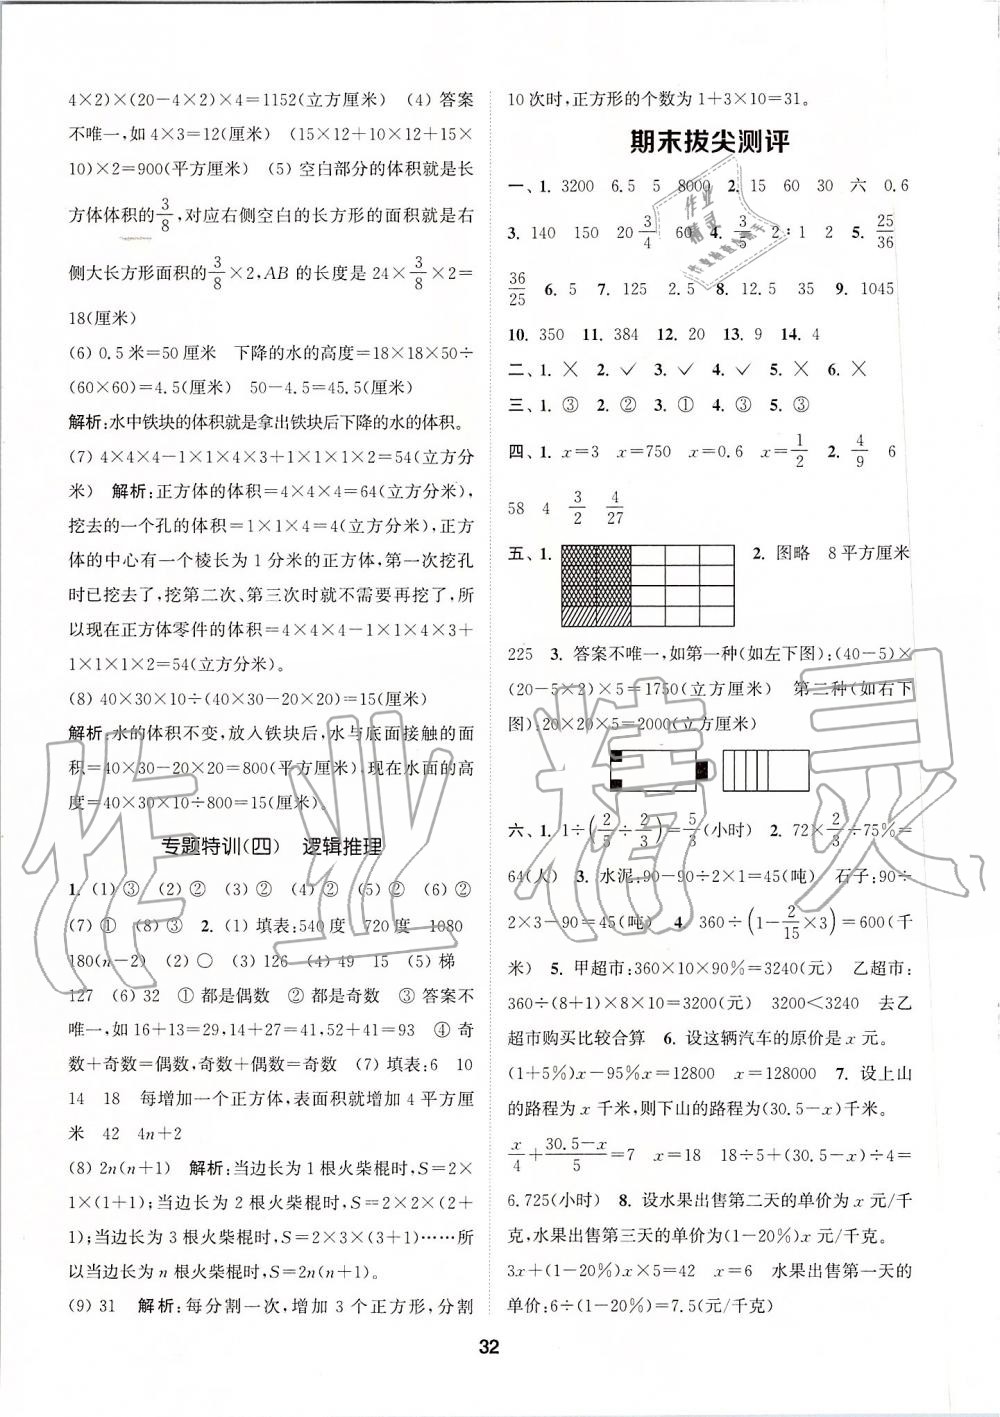 4×2)×(20-4×2)×4=1152(立方厘米) (4) 答案
不唯一,如 4×3=12(厘米) (15×12+10×12+15×
10)×2=900(平方厘米) (5) 空白部分的体积就是长
方体体积的3/8,对应右侧空白的长方形的面积就是右
侧大长方形面积的3/8×2,AB 的长度是 24×3/8×2=
18(厘米)
(6) 0.5 米=50 厘米 下降的水的高度=18×18×50÷
(60×60)=4.5(厘米) 50-4.5=45.5(厘米)
解析:水中铁块的体积就是拿出铁块后下降的水的体积。
(7) 4×4×4-1×1×4×3+1×1×1×2=54(立方分
米) 解析:正方体的体积=4×4×4=64(立方分米),
挖去的一个孔的体积=1×1×4=4(立方分米),正方
体的中心有一个棱长为 1 分米的正方体,第一次挖孔
时已挖去了,挖第二次、第三次时就不需要再挖了,所
以现在正方体零件的体积=4×4×4-1×1×4×3+
1×1×1×2=54(立方分米)。
(8) 40×30×10÷(40×30-20×20)=15(厘米)
解析:水的体积不变,放入铁块后,水与底面接触的面
积=40×30-20×20=800(平方厘米),现在水面的高
度=40×30×10÷800=15(厘米)。
专题特训(四) 逻辑推理
1. (1) ③ (2) ② (3) ② (4) ② (5) ② (6) ②
(7) ① (8) ③ 2. (1) 填表:540 度 720 度 1080
180(n-2) (2) ○ (3) 126 (4) 49 15 (5) 梯
127 (6) 32 ① 都是偶数 ② 都是奇数 ③ 答案不
唯一,如 16+13=29,14+27=41,52+41=93 ④ 奇
数+奇数=偶数,奇数+偶数=奇数 (7) 填表:6 10
14 18 每增加一个正方体,表面积就增加 4 平方厘
米 42 4n+2
(8) 2n(n+1) 解析:当边长为 1 根火柴棍时,S=2×
1×(1+1);当边长为 2 根火柴棍时,S=2×2×(2+
1);当边长为 3 根火柴棍时,S=2×3×(3+1)……所
以当边长为 n 根火柴棍时,S=2n(n+1)。
(9) 31 解析:每分割一次,增加 3 个正方形,分割
10 次时,正方形的个数为 1+3×10=31。
期末拔尖测评
一、1. 3200 6.5 5 8000 2. 15 60 30 六 0.6
3. 140 150 20 3/4 60 4. 3/5 2∶1 2 5. 25/36
36/25 6. 5 7. 125 2.5 8. 12.5 35 9. 1045
10. 350 11. 384 12. 20 13. 9 14. 4
二、1. × 2. ✓ 3. ✓ 4. ✓ 5. × 6. ×
三、1. ③ 2. ② 3. ① 4. ③ 5. ③
四、1. x=3 x=750 x=0.6 x=1/2 2. 4/9 6
58 4 3/2 4/27
五、1. 2. 图略 8 平方厘米
225 3. 答案不唯一,如第一种(如左下图):(40-5)×
(20-5×2)×5=1750(立方厘米) 第二种(如右下
图):20×20×5=2000(立方厘米)
六、1. 1÷(2/5÷2/3)=5/3(小时) 2. 72×2/3÷75%=
64(人) 3. 水泥:90-90÷2×1=45(吨) 石子:90÷
2×3-90=45(吨) 4. 360÷(1-2/15×3)=600(千
米) 5. 甲超市:360×10×90%=3240(元) 乙超市:
360÷(8+1)×8×10=3200(元) 3200<3240 去乙
超市购买比较合算 6. 设这辆汽车的原价是 x 元。
(1+5%)x-95%x=12800 x=128000 7. 设上山
的路程为 x 千米,则下山的路程为(30.5-x)千米。
x/4+(30.5-x)/5=7 x=18 18÷5+(30.5-x)÷4=
6.725(小时) 8. 设水果出售第二天的单价为 x 元/千
克,水果出售第三天的单价为(1-20%)x 元/千克。
3x+(1-20%)x×5=42 x=6 水果出售第一天的
单价:6÷(1-20%)=7.5(元/千克)
32
作业精灵